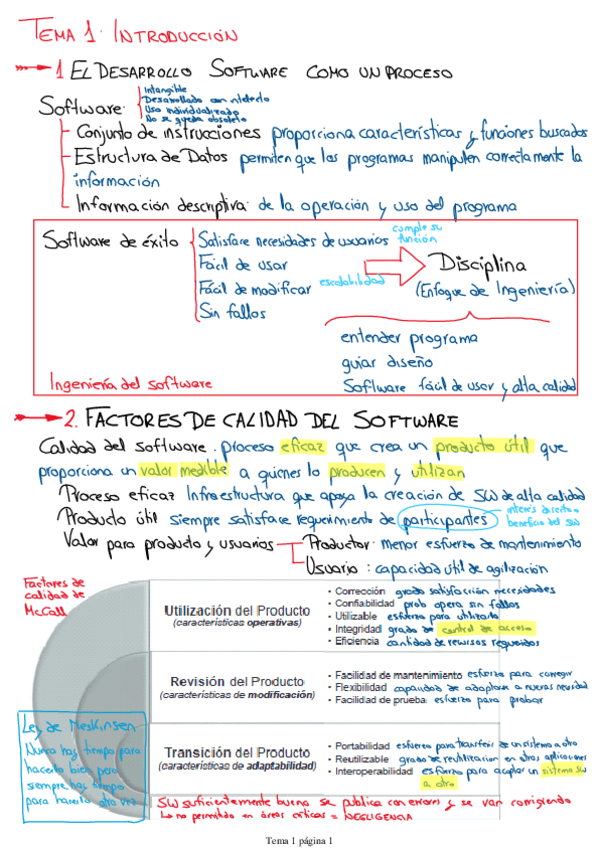 TEMA 1: INTRODUCCIÓN
1 EL DESARROLLO SOFTWARE COMO UN PROCESO
Software:
Intangible
Desarrollado con intelecto
Uso individualizado
No se queda obsoleto
Conjunto de instrucciones proporciona características y funciones buscadas
Estructura de Datos permiten que los programas manipulen correctamente la
información
Información descriptiva: de la operación y uso del programa
Software de éxito
Satisface necesidades de usuarios cumple su función
Fácil de usar
Fácil de modificar escalabilidad
Sin fallos
Disciplina
(Enfoque de Ingeniería)
entender programa
guiar diseño
Software fácil de usar y alta calidad
Ingeniería del software
2. FACTORES DE CALIDAD DEL SOFTWARE
Calidad del software: proceso eficaz que crea un producto útil que
proporciona un valor medible a quienes lo producen y utilizan
Proceso eficaz Infraestructura que apoya la creación de SW de alta calidad
Producto útil siempre satisface requerimiento de participantes
interés directo o
beneficio del SW
Valor para producto y usuarios
Productor: menor esfuerzo de mantenimiento
Usuario: capacidad útil de agilización
Factores de
calidad de
McCall
Utilización del Producto
(características operativas)
• Corrección grado satisfacción necesidades
• Confiabilidad prob opera sin fallos
• Utilizable esfuerzo para utilizarlo
• Integridad grado de control de acceso
• Eficiencia cantidad de recursos requeridos
Revisión del Producto
(características de modificación)
• Facilidad de mantenimiento esfuerzo para corregir
• Flexibilidad capacidad de adaptarse a nueva necesidad
• Facilidad de prueba: esfuerzo para probar
Transición del Producto
(características de adaptabilidad)
• Portabilidad esfuerzo para transferir de un sistema a otro
• Reutilizable grado de reutilización en otras aplicaciones
• Interoperabilidad esfuerzo para acoplar un sistema SW
a otro
Ley de Meskinsen
Nunca hay tiempo para
hacerlo bien pero
siempre hay tiempo
para hacerlo otra vez
SW suficientemente bueno se publica con errores y se van corrigiendo
↳ no permitido en áreas críticas = NEGLIGENCIA
Tema 1 página 1